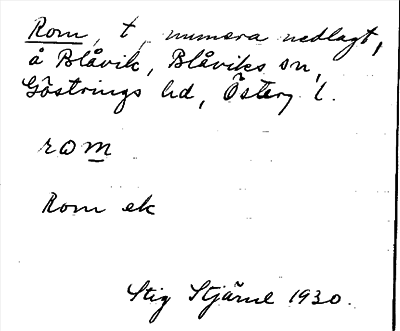 Rom, t, numera nedlagt,
å Blåvik, Blåviks sn,
Göstrings hd, Österg l.
rom
Rom ek
Stig Stjärne 1930.